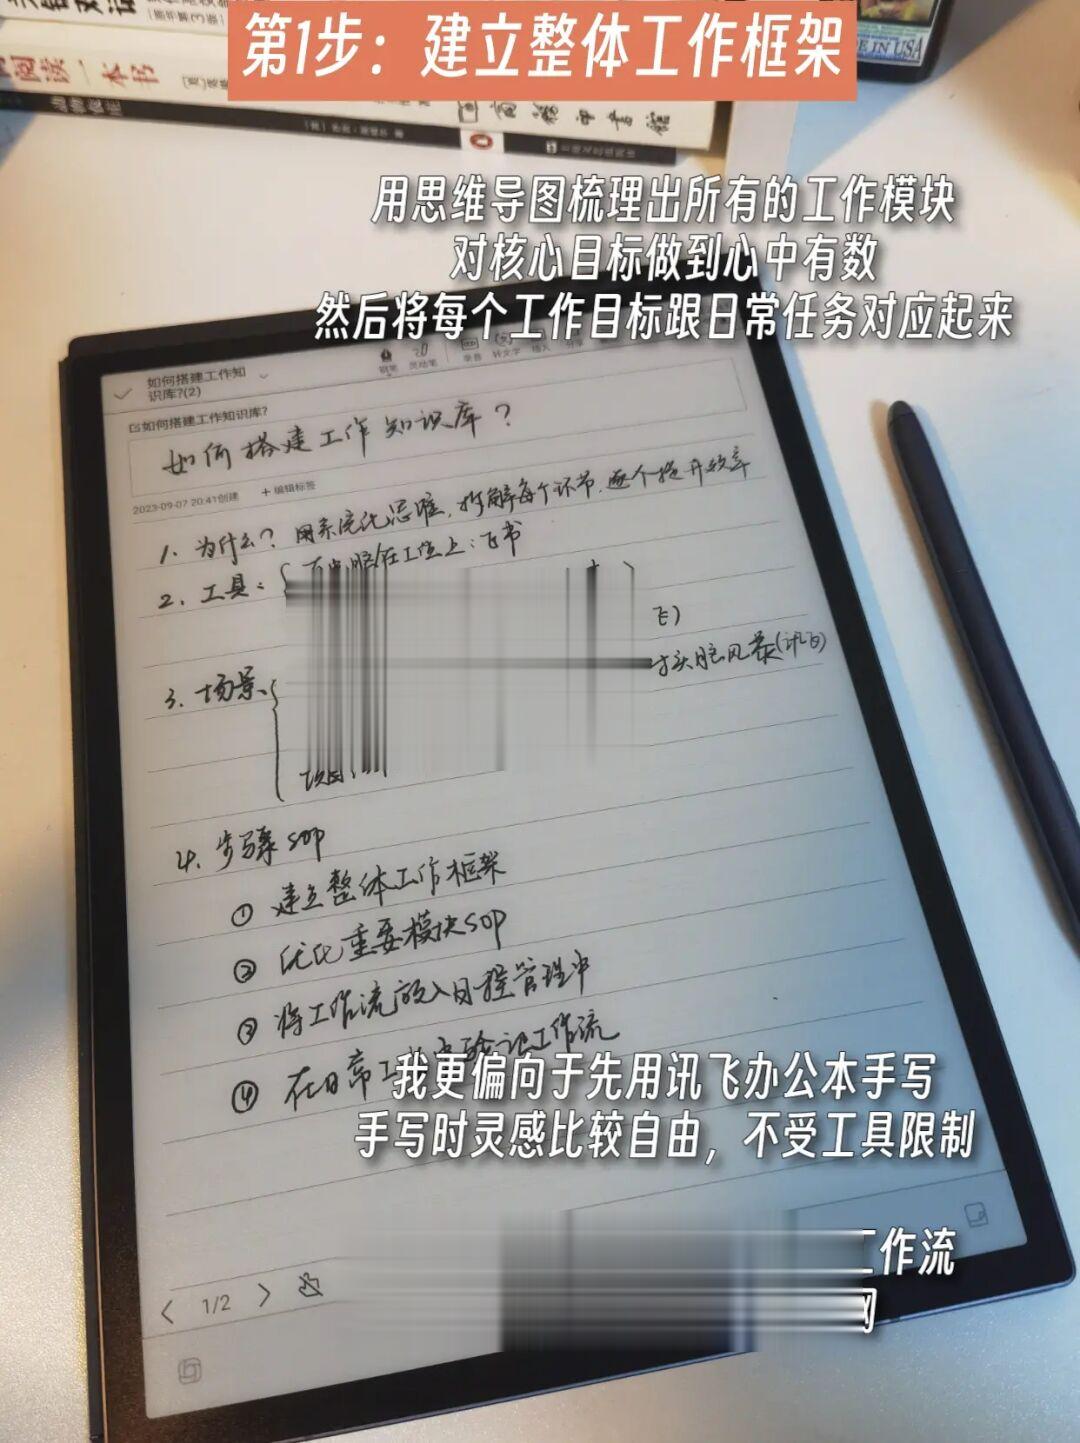 第1步：建立整体工作框架
阅读一本书
商务印书馆
MADE IN USA
用思维导图梳理出所有的工作模块
对核心目标做到心中有数
然后将每个工作目标跟日常任务对应起来
如何搭建工作知
识库?(2)
钢笔 灵动笔 录音 转文字 插入 分享
如何搭建工作知识库?
如何搭建工作知识库？
2023-09-07 20:41创建 + 编辑标签
1. 为什么？用系统化思维，拆解每个环节，逐个提升效率
2. 工具：
在工位上：飞书
飞)
3. 场景
头脑风暴(讯飞)
项目
4. 步骤SOP
① 建立整体工作框架
② 优化重要模块SOP
③ 将工作流放入日程管理中
④ 在日常工作中验证工作流
我更偏向于先用讯飞办公本手写
手写时灵感比较自由，不受工具限制
工作流
1/2